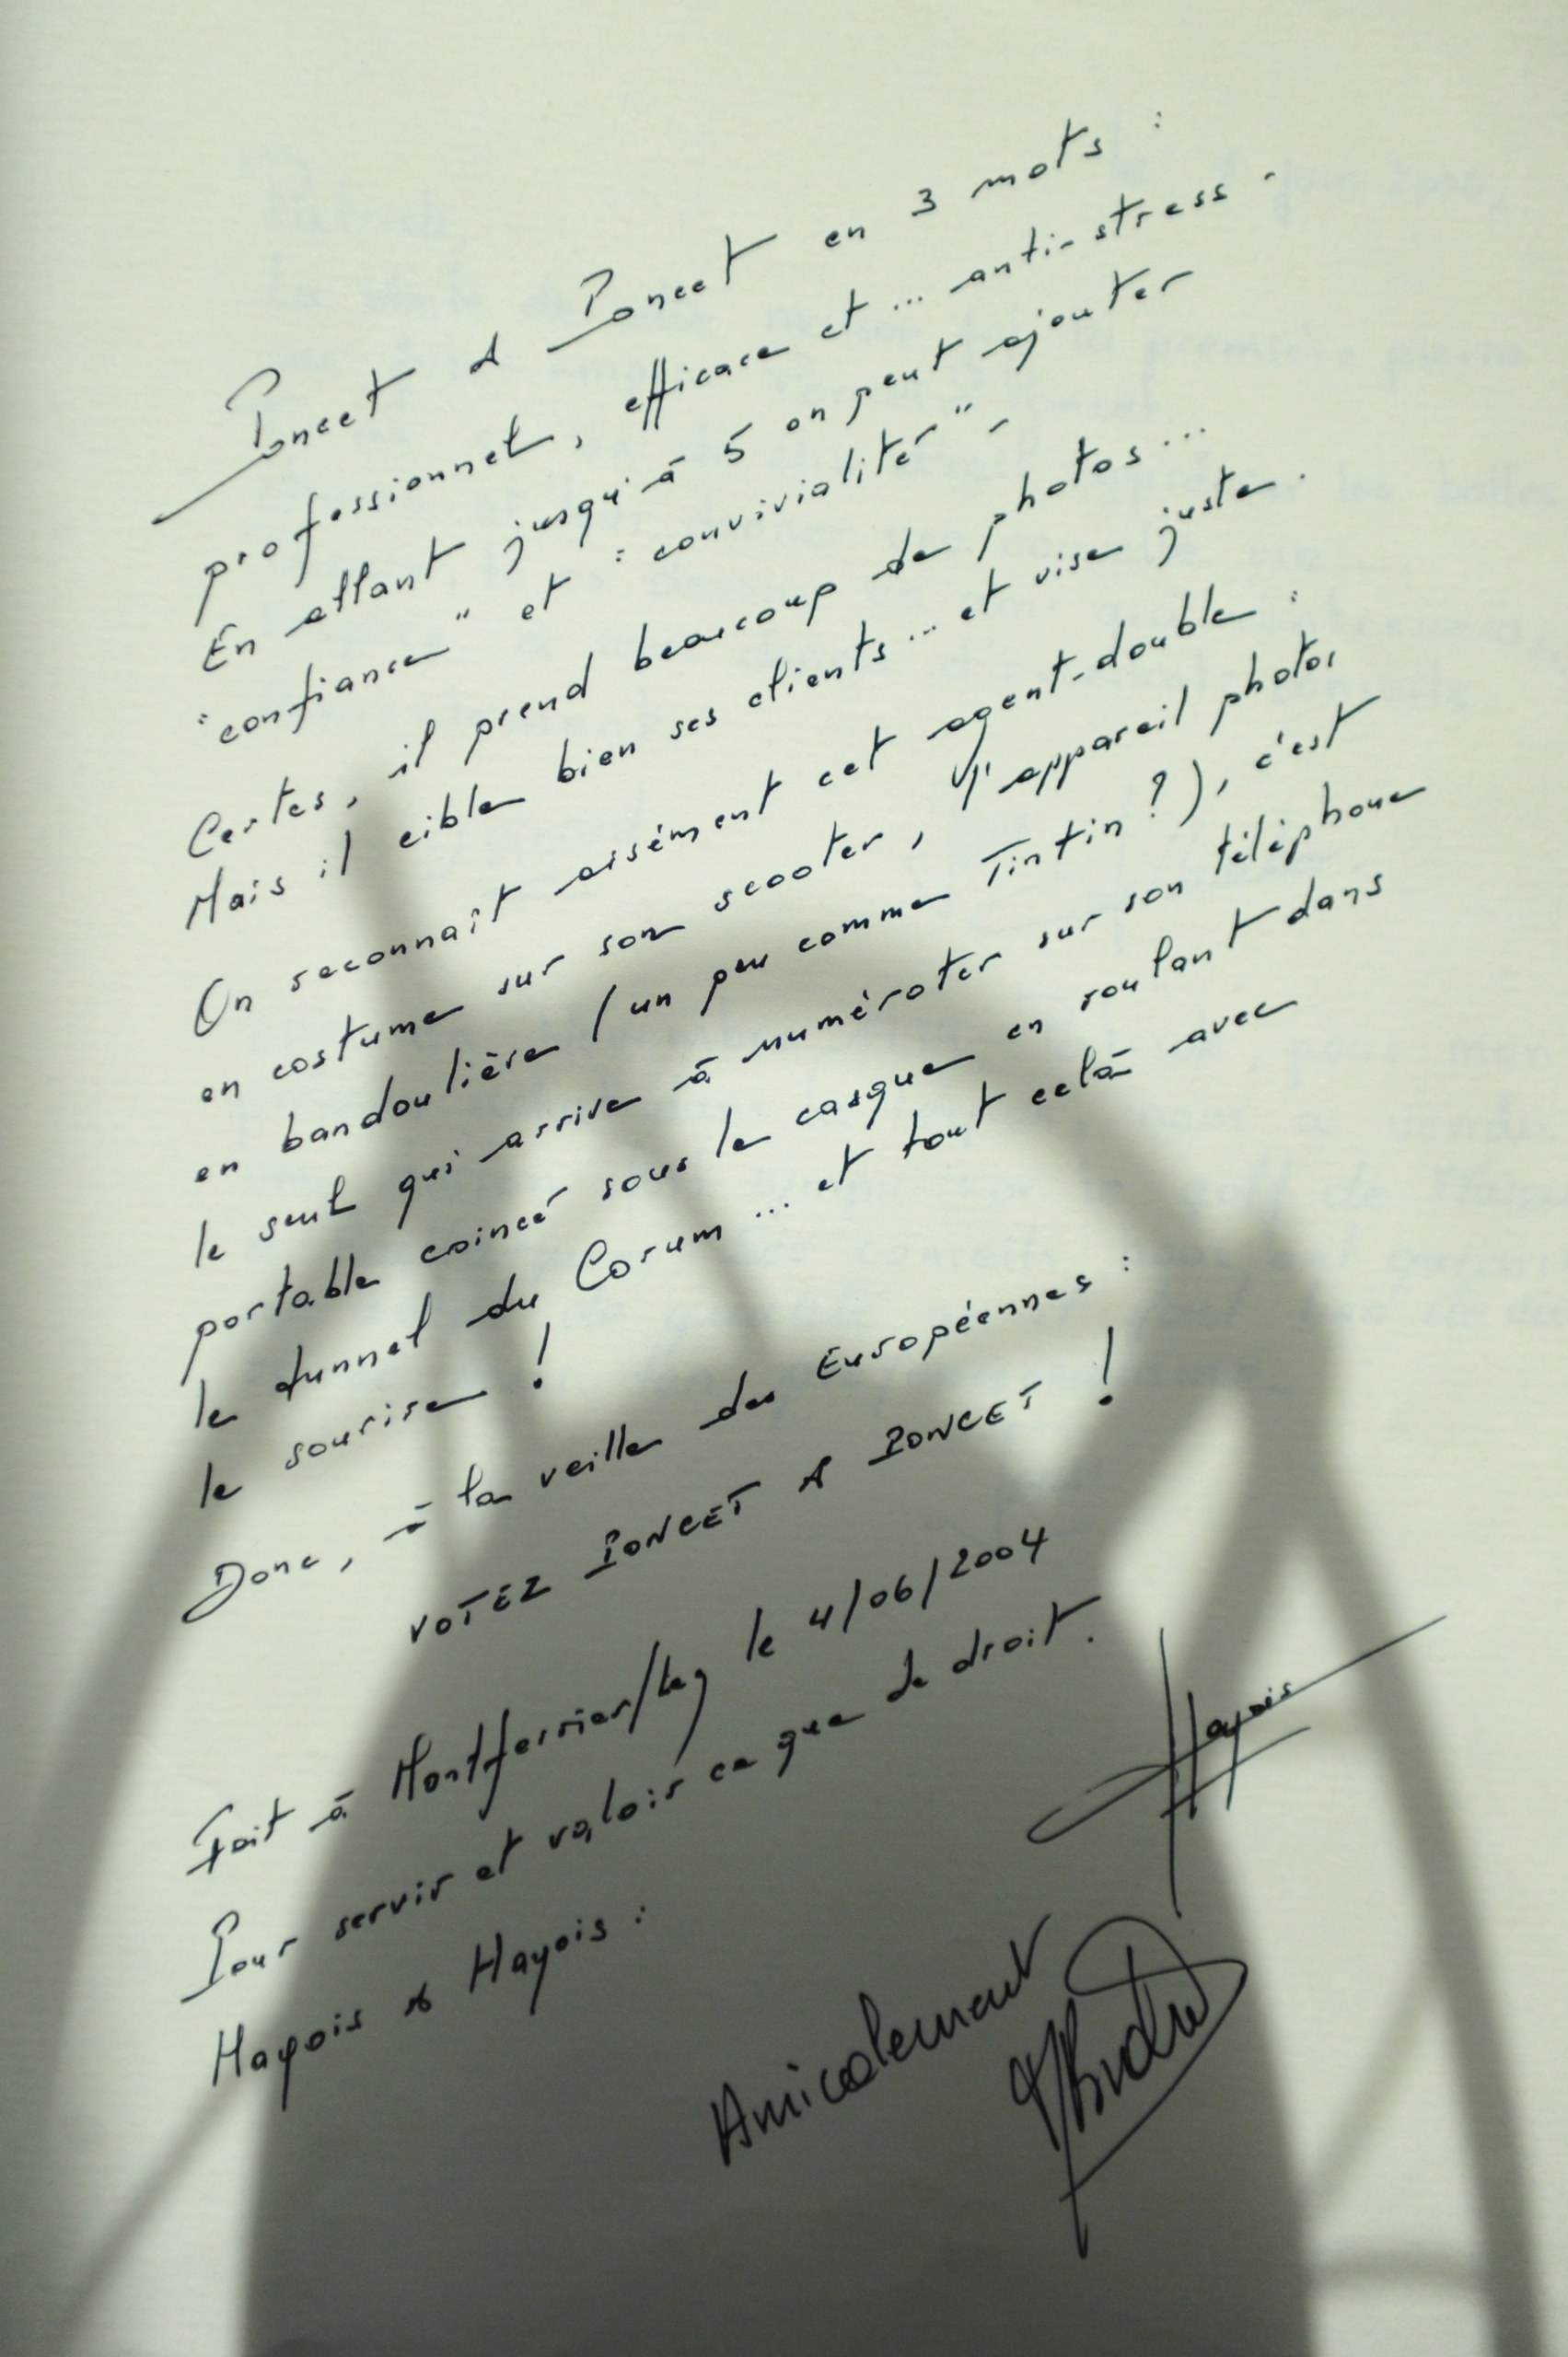 Poncet & Poncet en 3 mots :
professionnel, efficace et ... anti-stress.
En allant jusqu'à 5 on peut ajouter
"confiance" et "convivialité".
Certes, il prend beaucoup de photos...
Mais il cible bien ses clients... et vise juste.
On reconnaît aisément cet agent-double :
en costume sur son scooter, l'appareil photos
en bandoulière (un peu comme Tintin ?), c'est
le seul qui arrive à numéroter sur son téléphone
portable coincé sous le casque en roulant dans
le tunnel du Corum ... et tout celà avec
le sourire !
Donc, à la veille des Européennes :
VOTEZ PONCET & PONCET !
Fait à Montferrier/Lez le 4/06/2004
Pour servir et valoir ce que de droit.
Hayois & Hayois :
Hayois
Amicalement